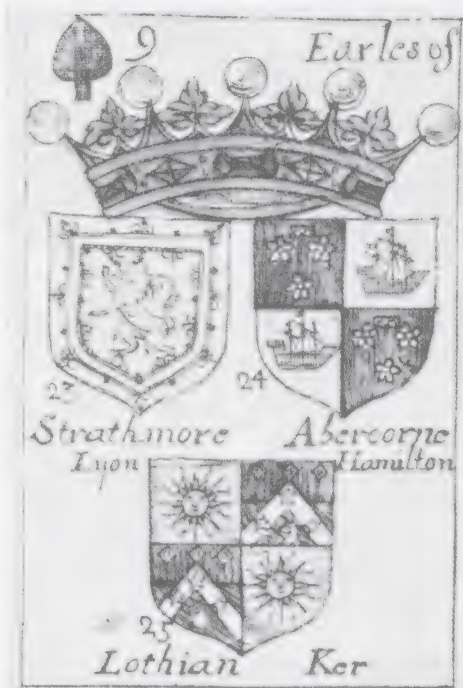 9 Earles of
23 24
Strathmore Abercorne
Lyon Hamilton
25
Lothian Ker